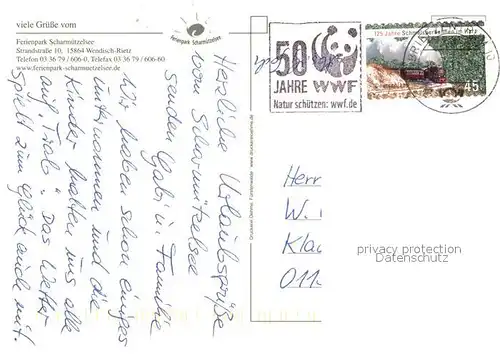 viele Grüße vom
Ferienpark Scharmützelsee
Strandstraße 10, 15864 Wendisch-Rietz
Telefon 03 36 79 / 606-0, Telefax 03 36 79 / 606-60
www.ferienpark-scharmuetzelsee.de
Ferienpark Scharmützelsee
50
JAHRE WWF
Natur schützen: wwf.de
125 Jahre Schmalspurbahnen im Harz
45
Herzliche Urlaubsgrüße
vom Scharmützelsee
senden Gabi u. Familie
Wir haben schon einiges
unternommen und die
Kinder halten uns alle
auf Trab. Das Wetter
spielt zum Glück auch mit.
Herr
W.
Kla
011
privacy protection
Datenschutz